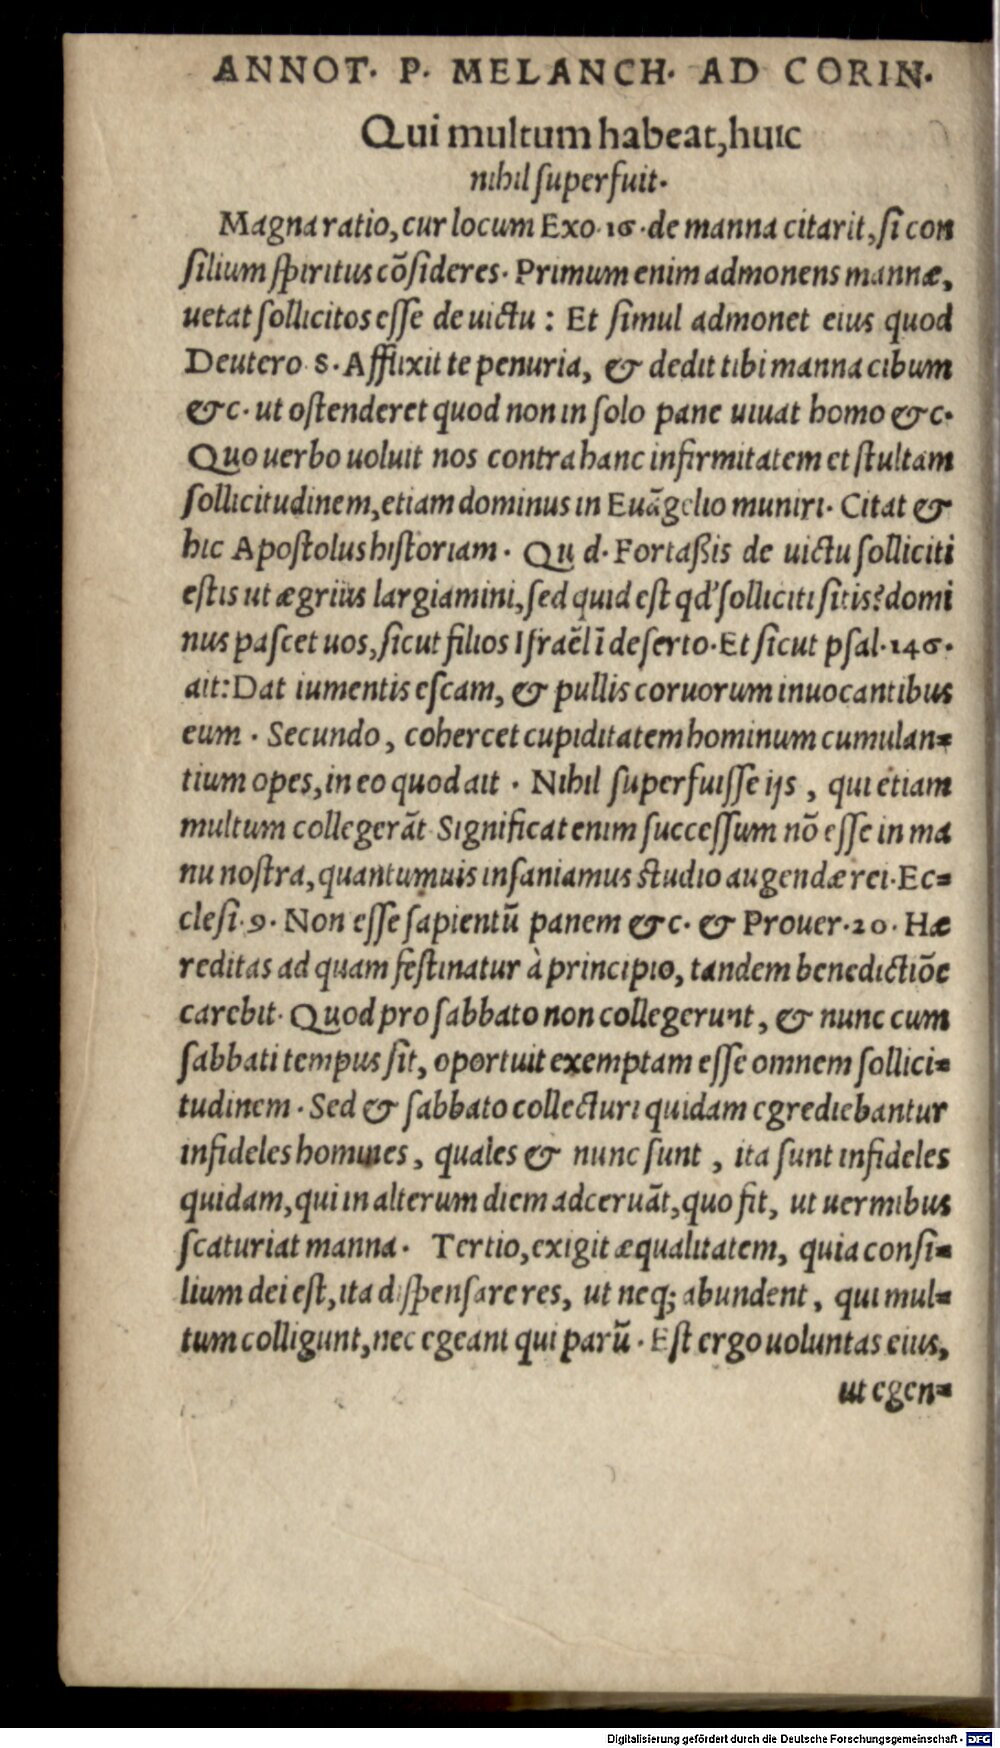 ANNOT. P. MELANCH. AD CORIN.
Qui multum habeat, huic
nihil superfuit.
Magna ratio, cur locum Exo. 16. de manna citarit, si con
silium spiritus cõsideres. Primum enim admonens mannæ,
uetat sollicitos esse de uictu : Et simul admonet eius quod
Deutero 8. Afflixit te penuria, & dedit tibi manna cibum
&c. ut ostenderet quod non in solo pane uiuat homo &c.
Quo uerbo uoluit nos contra hanc infirmitatem et stultam
sollicitudinem, etiam dominus in Euãgelio muniri. Citat &
hic Apostolus historiam. Qu d. Fortaßis de uictu solliciti
estis ut ægrius largiamini, sed quid est qd' solliciti sitis? domi
nus pascet uos, sicut filios Israẽl ĩ deserto. Et sicut psal. 146.
ait: Dat iumentis escam, & pullis coruorum inuocantibus
eum. Secundo, cohercet cupiditatem hominum cumulan=
tium opes, in eo quod ait. Nihil superfuisse ijs, qui etiam
multum collegerãt. Significat enim successum nõ esse in ma
nu nostra, quantumuis insaniamus studio augendæ rei. Ec=
clesi. 9. Non esse sapientũ panem &c. & Prouer. 20. Hæ
reditas ad quam festinatur à principio, tandem benedictiõe
carebit. Quod pro sabbato non collegerunt, & nunc cum
sabbati tempus sit, oportuit exemptam esse omnem sollici=
tudinem. Sed & sabbato collecturi quidam egrediebantur
infideles homines, quales & nunc sunt, ita sunt infideles
quidam, qui in alterum diem adceruãt, quo fit, ut uermibus
scaturiat manna. Tertio, exigit æqualitatem, quia consi=
lium dei est, ita dispensare res, ut neq; abundent, qui mul=
tum colligunt, nec egeant qui parũ. Est ergo uoluntas eius,
ut egen=
Digitalisierung gefördert durch die Deutsche Forschungsgemeinschaft - DFG